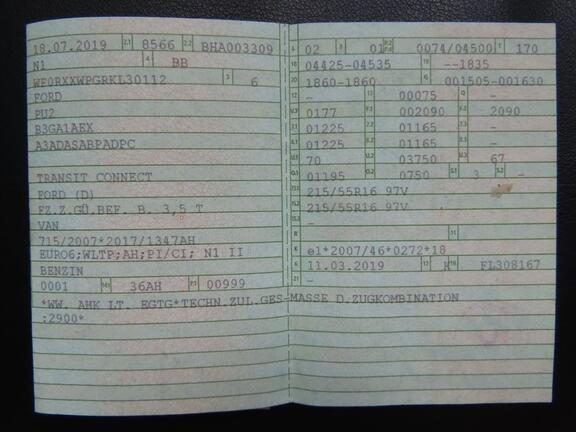 18.07.2019 2.1 8566 2.2 BHA003309
N1 4 BB
WF0RXXWPGRKL30112 3 6
FORD
PU2
B3GA1AEX
A3ADASABPADPC
TRANSIT CONNECT
FORD (D)
FZ.Z.GÜ.BEF. B. 3,5 T
VAN
715/2007*2017/1347AH
EURO6;WLTP;AH;PI/CI; N1 II
BENZIN
0001 36AH 00999
*WW. AHK LT. EGTG*TECHN.ZUL.GES-MASSE D.ZUGKOMBINATION
:2900*
02 01 0074/04500 T 170
18 04425-04535 19 --1835
20 1860-1860 G 001505-001630
12 - 13 00075 Q -
0177 002090 2090
01225 01165 -
01225 01165 -
70 03750 67
01195 0750 S.1 3 S.2 -
215/55R16 97V
215/55R16 97V
-
R 11
K e1*2007/46*0272*18
6 11.03.2019 17 K 16 FL308167
21 -